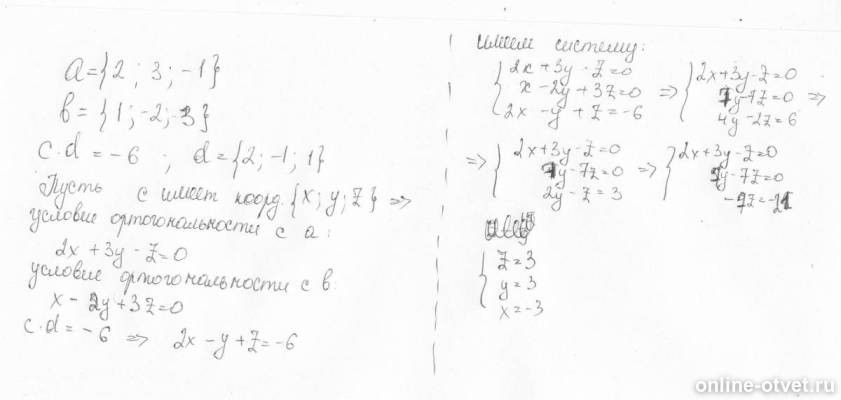 a={2; 3; -1}
b={1; -2; 3}
c·d = -6 ; d={2; -1; 1}
Пусть c имеет коорд. {x; y; z} =>
условие ортогональности с a:
2x + 3y - z = 0
условие ортогональности с b:
x - 2y + 3z = 0
c·d = -6 => 2x - y + z = -6
имеем систему:
{2x + 3y - z = 0
x - 2y + 3z = 0
2x - y + z = -6
=> {2x + 3y - z = 0
7y - 7z = 0
4y - 2z = 6
=>
=> {2x + 3y - z = 0
7y - 7z = 0
2y - z = 3
=> {2x + 3y - z = 0
7y - 7z = 0
-7z = -21
{z = 3
y = 3
x = -3
online-otvet.ru